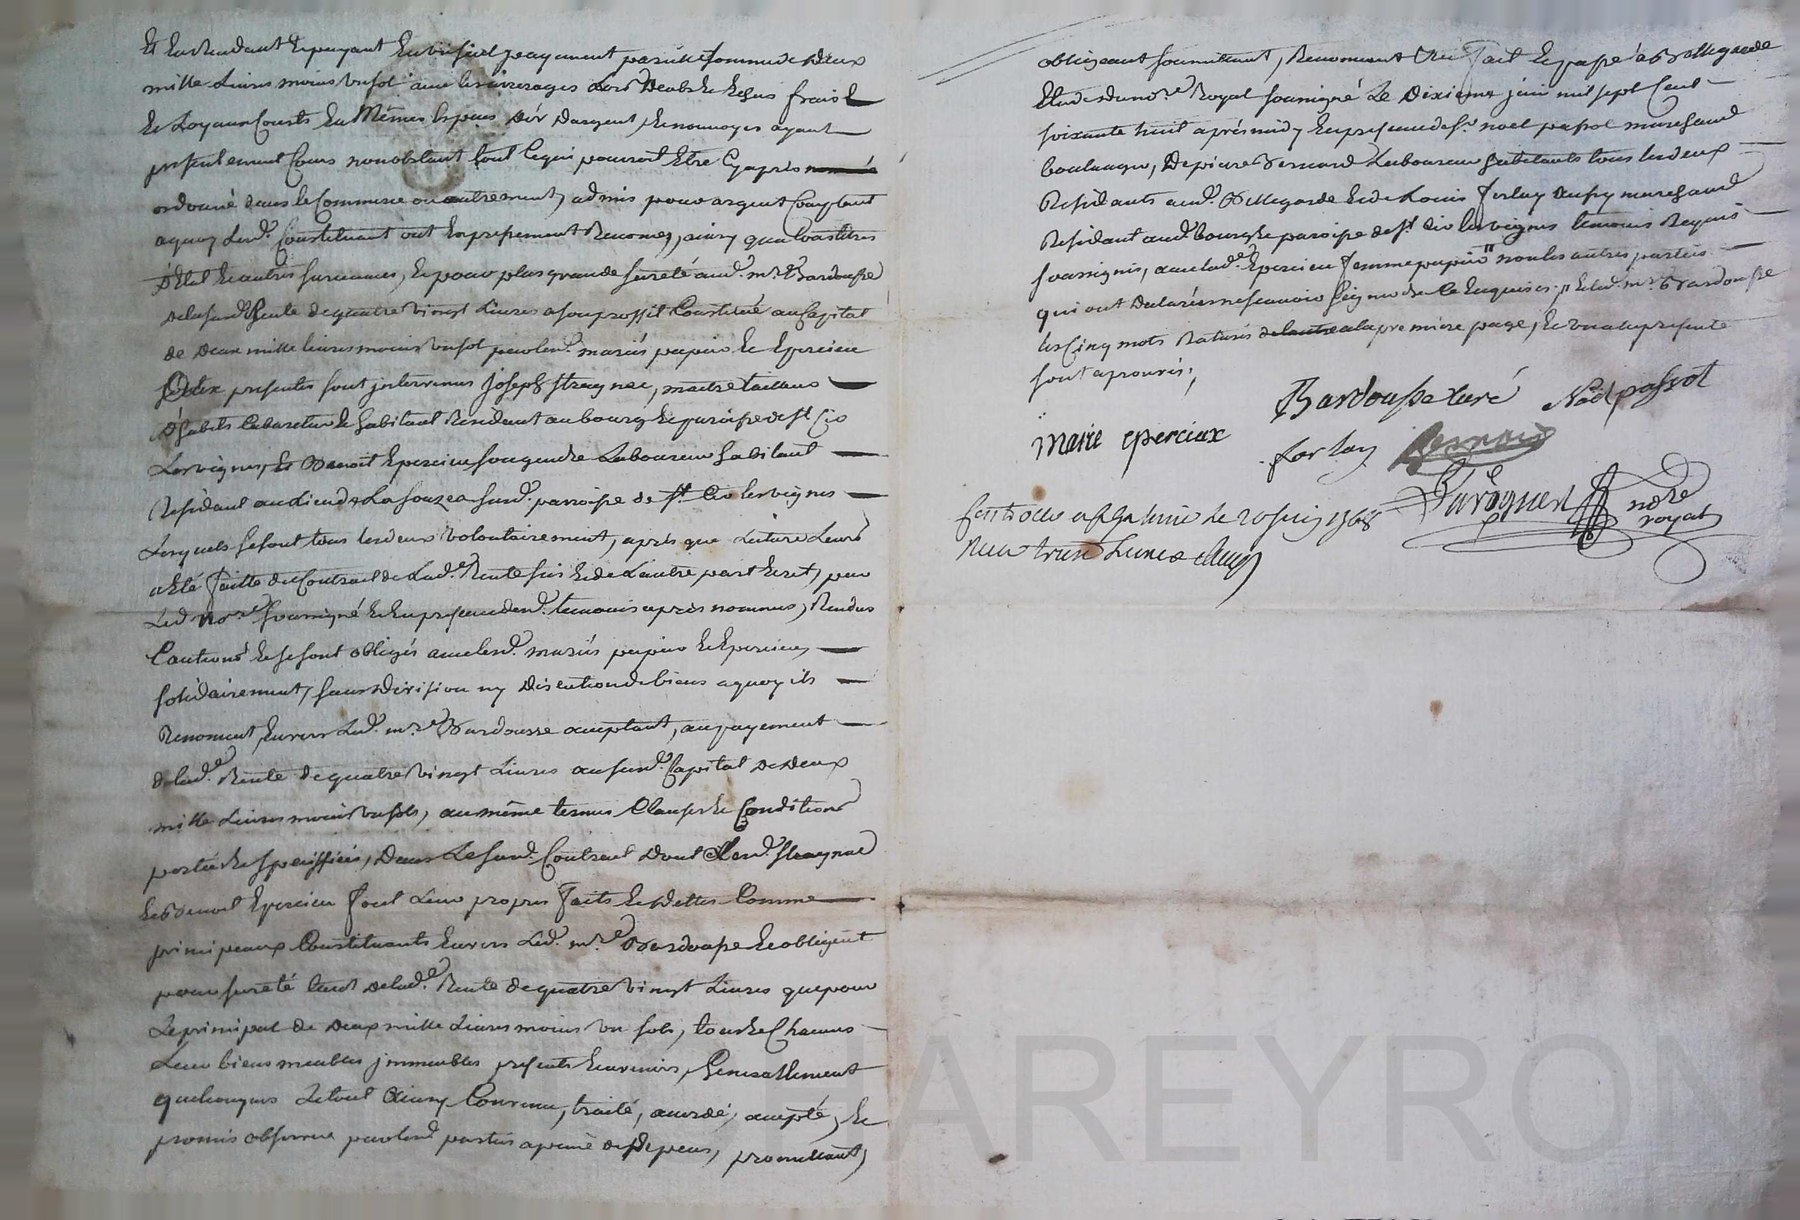 Et En Rendant Et payant En un seul payement pareille somme de Deux
mille Livres moins un sol avec les arrerages Lors Deubs Et Echus fraix &
Et Loyaux Couts En Mêmes Especes D'or D'argent Et monnoyes ayant
presentement Cours nonobstant tout Ce qui pourroit Etre Cy après
ordonné dans le Commerce ou autrement, admis pour argent Comptant
a quoy Lesd. Constituant ont Expressement Renoncé, ainsy qua tous titres
D'Etat Et autres survenues, Et pour plus grande sureté aud. mre Bardousse
De la susd. Rente de quatre vingt Livres a son proffit Constitué au Capital
de Deux mille livres moins un sol par lesd. mariés papin Et Epercieu
presentes sont intervenus Joseph Straynac, maitre tailleur
D'habits Cabaretier Et habitant Resident au bourg Et paroisse de St Cir
Les vignes, Et Benoit Epercieu son gendre Laboureur habitant
Resident au Lieu de La Souzea susd. paroisse de St Cir les vignes
Lesquels se sont tous les deux volontairement, après que Lecture Leur
a Eté faitte du Contract de Lad. Rente sis Et de L'autre part Ecrit, par
Led. nore soussigné Et En presence desd. temoins après nommés, Rendus
Cautions Et se sont obligés avec lesd. mariés papin Et Epercieu,
solidairement, sans Division ny Discution de biens a quoy ils
Renoncent Envers Led. mre Bardousse acceptant, au payement
De lad. Rente de quatre vingt Livres au susd. Capital De Deux
mille Livres moins un sols, au même termes Clauses Et Conditions
portées Et speciffiées, Dans Le susd. Contract Dont Lesd. Straynac
Et Benoit Epercieu font Leur propres faits Et Dettes Comme
principaux Constituants Envers Led. mre Bardousse Et obligent
pour sureté tant De lad. Rente de quatre vingt Livres que pour
Le principal de Deux mille Livres moins un sols, tous Et Chacuns
Leur biens meubles immeubles presents Et avenirs, Generallement
quelconques Le tout Ainsy Convenu, traité, accordé, accepté, Et
promis observer par lesd. parties a peine de Depens, promettant,
obligeant soumettant, Renonceant &a fait Et passé à Bellegarde
Etude du nore Royal soussigné Le Dixieme juin mil sept Cent
soixante huit après midy En presence de sr noel passot marchand
boulanger, De pierre Bernard Laboureur habitants tous les deux
Residants aud. Bellegarde Et de Louis forlay marchand
Resident aud. bourg Et paroisse de St Cir les vignes temoins Requis
soussignés, avec lad. Epercieu femme papin non les autres parties
qui ont Declarés ne scavoir signer de Ce Enquises, Et led. mre Bardousse
les Cinq mots Raturés de lautre a la premiere page, Et un a la presente
sont aprouvés,
Bardousse Curé Noël passot
Marie eperciux forlay Bernard
Controllé a le 20 juin 1768
Reçu treize Livres
nore
royal
HAREYRON